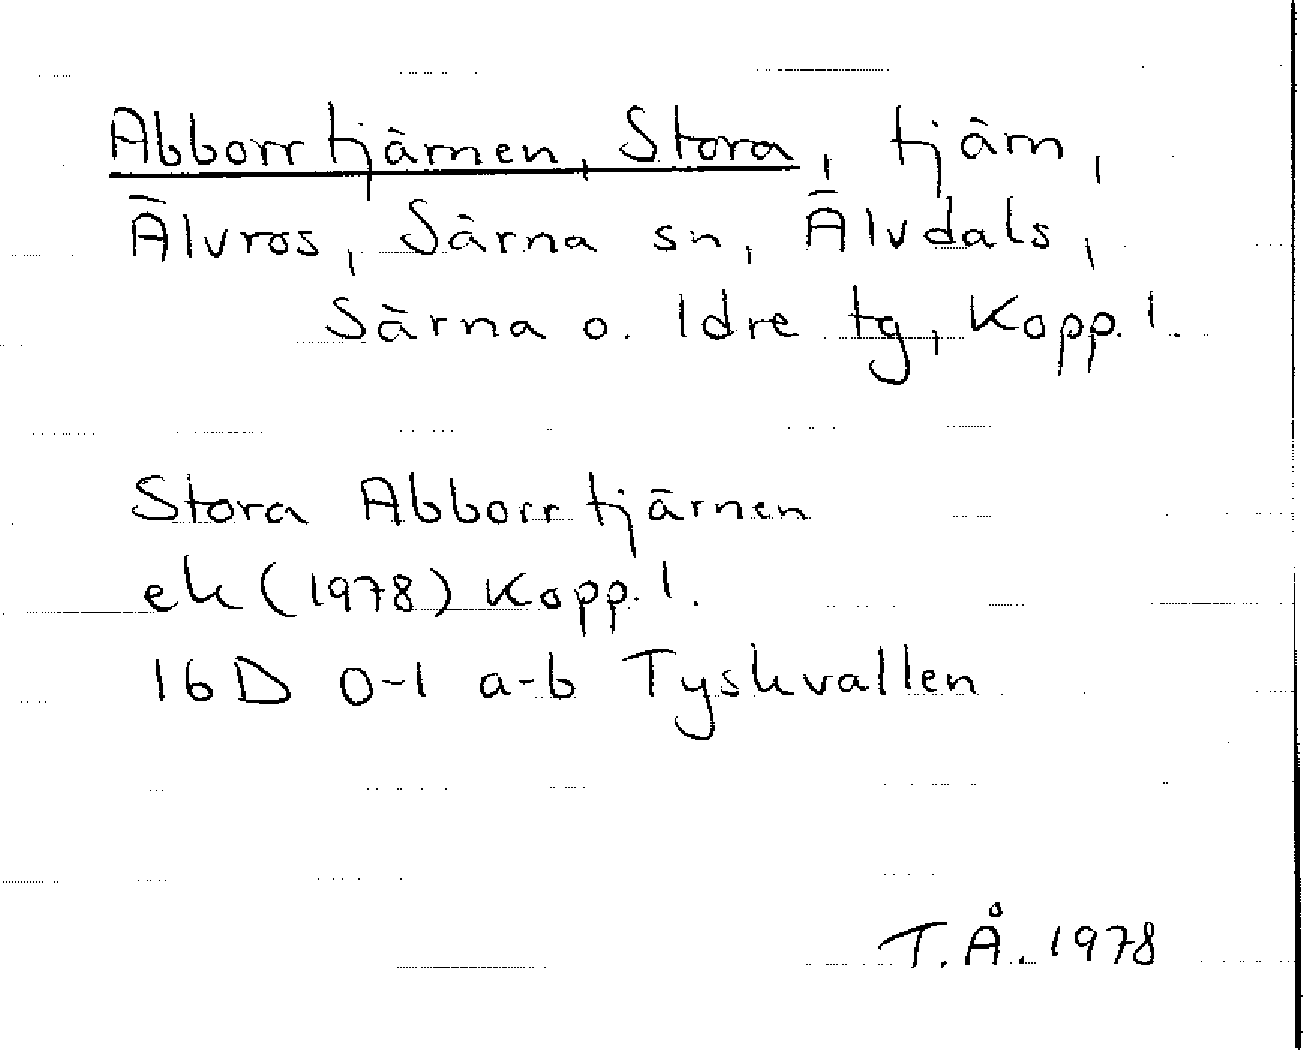 Abborrtjärnen, Stora, tjärn,
Älvros, Särna sn, Älvdals,
Särna o. Idre tg, Kopp. l.
Stora Abborrtjärnen
ek (1978) Kopp. l.
16D 0-1 a-b Tyskvallen
T.Å. 1978